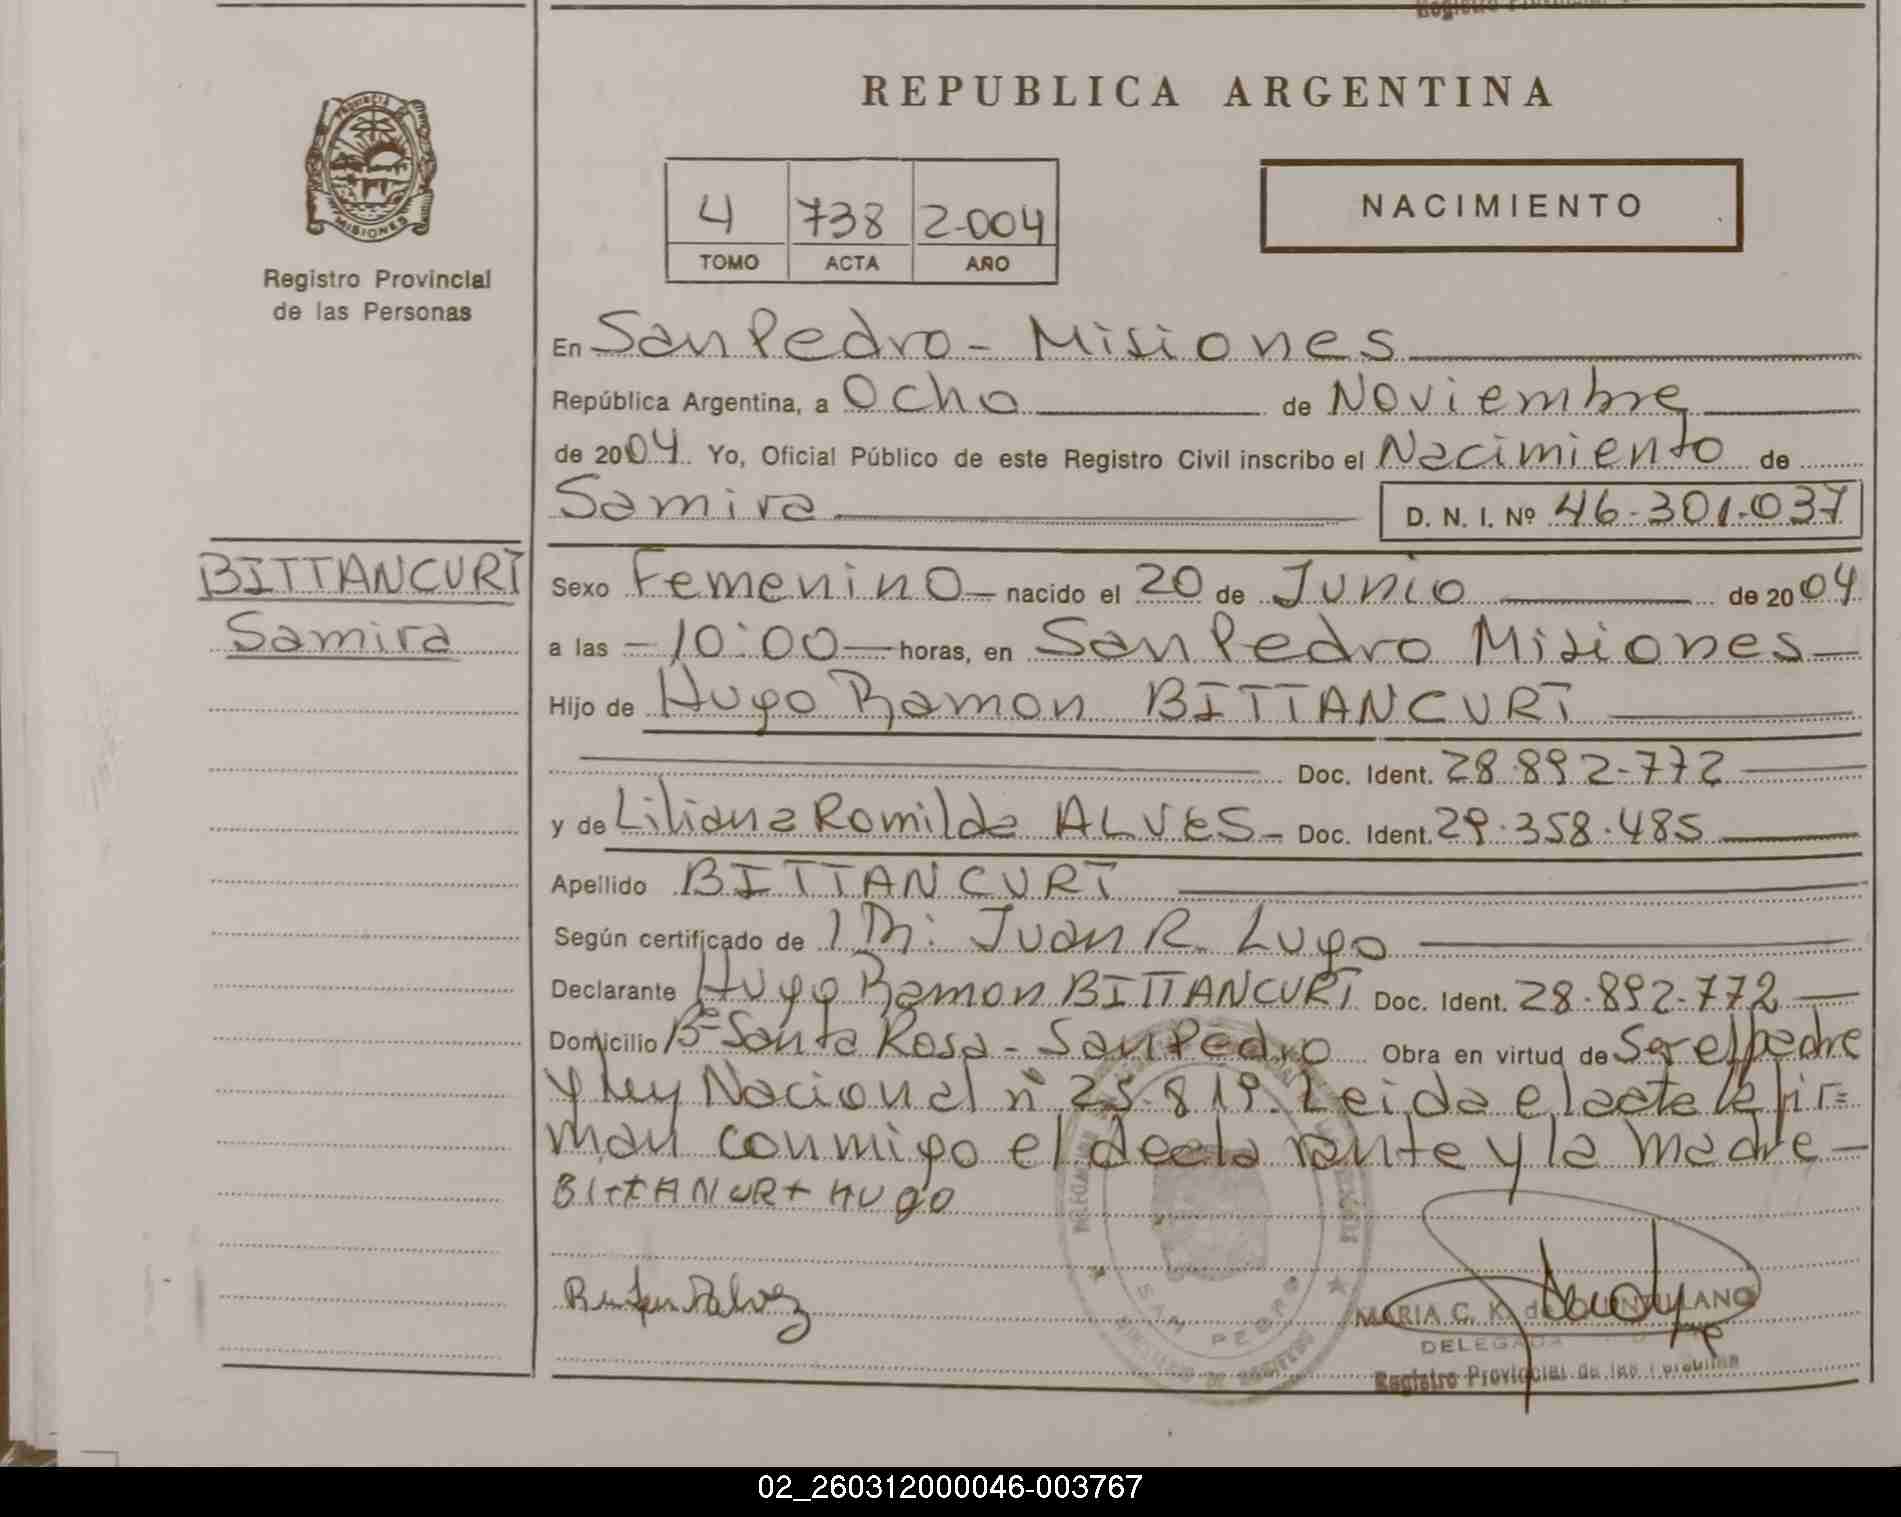 REPUBLICA ARGENTINA
PROVINCIA DE
MISIONES
Registro Provincial
de las Personas
4 738 2.004
TOMO ACTA AÑO
NACIMIENTO
En San Pedro - Misiones
República Argentina, a Ocho de Noviembre
de 2004. Yo, Oficial Público de este Registro Civil inscribo el Nacimiento de
Samira D. N. I. Nº 46.301.037
BITTANCURT
Samira
Sexo Femenino nacido el 20 de Junio de 2004
a las - 10:00 - horas, en San Pedro Misiones
Hijo de Hugo Ramon BITTANCURT
Doc. Ident. 28.892.772
y de Liliana Romilda ALVES - Doc. Ident. 29.358.485
Apellido BITTANCURT
Según certificado de Juan R. Lugo
Declarante Hugo Ramon BITTANCURT Doc. Ident. 28.892.772
Domicilio Bº Santa Rosa - San Pedro Obra en virtud de Ser el padre
y Ley Nacional nº 25.819. Leida el acta la fir=
man conmigo el declarante y la madre -
BittANCURt HUgo
SAN PEDRO
MARIA C. K. de QUINTULANO
DELEGADA
Registro Provincial de las Personas
02_260312000046-003767